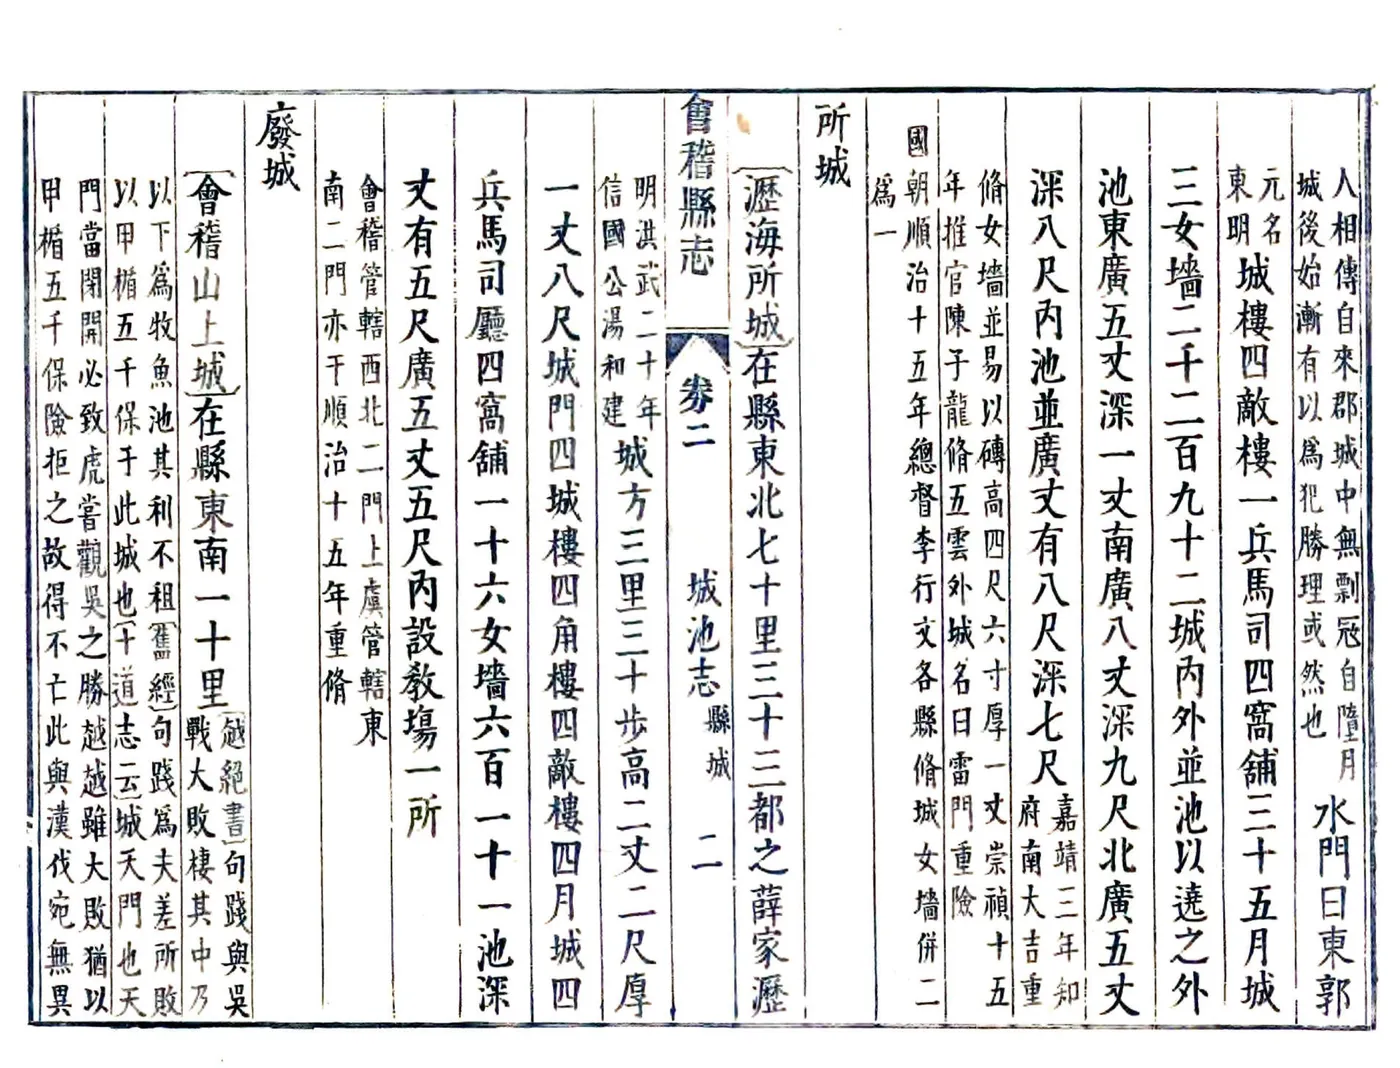 人相傳自來郡城中無剽冦自墮月
城後始漸有以爲犯勝理或然也
水門曰東郭
元名
東明
城樓四敵樓一兵馬司四窩舖三十五月城
三女墻二千二百九十二城內外並池以遶之外
池東廣五丈深一丈南廣八丈深九尺北廣五丈
深八尺內池並廣丈有八尺深七尺
嘉靖三年知
府南大吉重
脩女墻並易以磚高四尺六寸厚一丈崇禎十五
年推官陳子龍脩五雲外城名曰雷門重險
國朝順治十五年總督李行文各縣脩城女墻併二
爲一
所城
瀝海所城在縣東北七十里三十三都之薛家瀝
會稽縣志 卷二 城池志 縣城 二
明洪武二十年
信國公湯和建
城方三里三十步高二丈二尺厚
一丈八尺城門四城樓四角樓四敵樓四月城四
兵馬司廳四窩舖一十六女墻六百一十一池深
丈有五尺廣五丈五尺內設敎塲一所
會稽管轄西北二門上虞管轄東
南二門亦于順治十五年重脩
廢城
會稽山上城在縣東南一十里
越絕書句踐與吳
戰大敗棲其中乃
以下爲牧魚池其利不租舊經句踐爲夫差所敗
以甲楯五千保于此城也十道志云城天門也天
門當閉開必致虎嘗觀吳之勝越越雖大敗猶以
甲楯五千保險拒之故得不亡此與漢伐宛無異